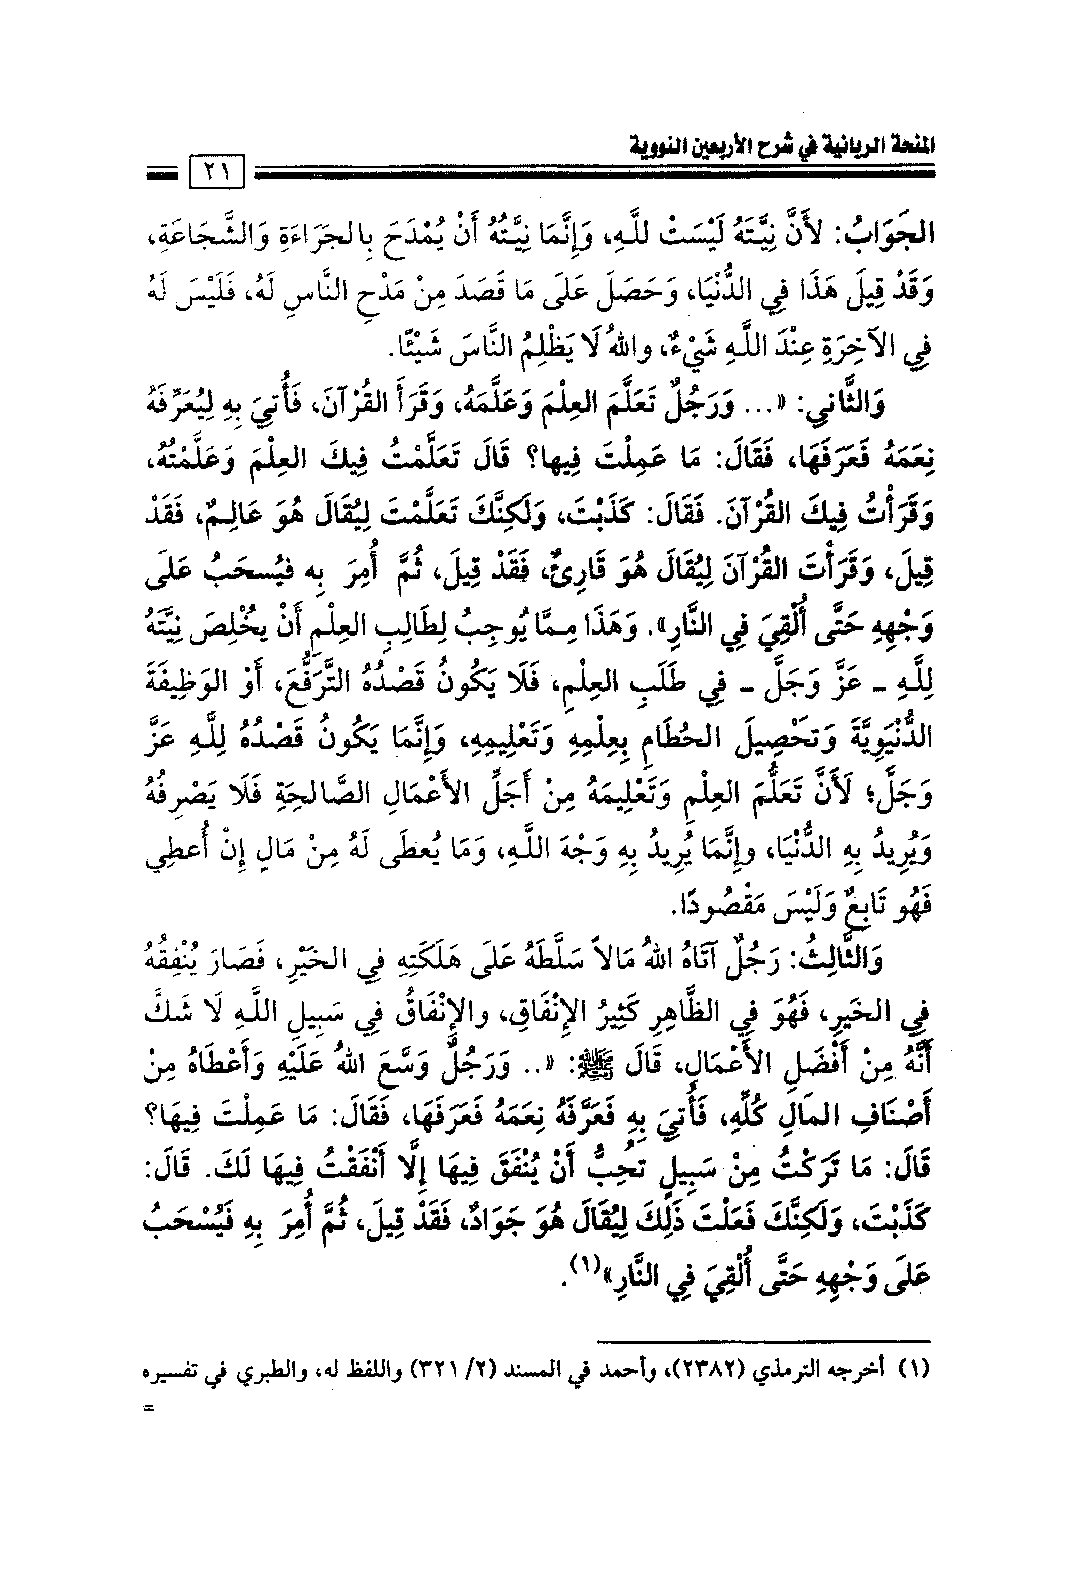 المنحة الربانية في شرح الأربعين النووية
٢١
الجَوَابُ: لأَنَّ نِيَّتَهُ لَيْسَتْ للَّهِ، وَإِنَّمَا نِيَّتُهُ أَنْ يُمْدَحَ بِالجَرَاءَةِ وَالشَّجَاعَةِ،
وَقَدْ قِيلَ هَذَا فِي الدُّنْيَا، وَحَصَلَ عَلَى مَا قَصَدَ مِنْ مَدْحِ النَّاسِ لَهُ، فَلَيْسَ لَهُ
فِي الآخِرَةِ عِنْدَ اللَّهِ شَيْءٌ، واللهُ لَا يَظْلِمُ النَّاسَ شَيْئًا.
وَالثَّاني: «... وَرَجُلٌ تَعَلَّمَ العِلْمَ وَعَلَّمَهُ، وَقَرَأَ القُرْآنَ، فَأُتِيَ بِهِ لِيُعَرِّفَهُ
نِعَمَهُ فَعَرَفَهَا، فَقَالَ: مَا عَمِلْتَ فِيها؟ قَالَ تَعَلَّمْتُ فِيكَ العِلْمَ وَعَلَّمْتُهُ،
وَقَرَأْتُ فِيكَ القُرْآنَ. فَقَالَ: كَذَبْتَ، وَلَكِنَّكَ تَعَلَّمْتَ لِيُقَالَ هُوَ عَالِمٌ، فَقَدْ
قِيلَ، وَقَرَأْتَ القُرْآنَ لِيُقَالَ هُوَ قَارِئٌ، فَقَدْ قِيلَ، ثُمَّ أُمِرَ بِهِ فيُسحَبُ عَلَى
وَجْهِهِ حَتَّى أُلْقِيَ فِي النَّارِ». وَهَذَا مِمَّا يُوجِبُ لِطَالِبِ العِلْمِ أَنْ يخْلِصَ نِيَّتَهُ
لِلَّهِ ـ عَزَّ وَجَلَّ ـ فِي طَلَبِ العِلْمِ، فَلَا يَكُونُ قَصْدُهُ التَّرَفُّعَ، أَوْ الوَظِيفَةَ
الدُّنْيَوِيَّةَ وَتَحْصِيلَ الحُطَامِ بِعِلْمِهِ وَتَعْلِيمِهِ، وَإِنَّمَا يَكُونُ قَصْدُهُ لِلَّهِ عَزَّ
وَجَلَّ؛ لَأَنَّ تَعَلُّمَ العِلْمِ وَتَعْلِيمَهُ مِنْ أَجَلِّ الأَعْمَالِ الصَّالحِةِ فَلَا يَصْرِفُهُ
وَيُرِيدُ بِهِ الدُّنْيَا، وإِنَّمَا يُرِيدُ بِهِ وَجْهَ اللَّهِ، وَمَا يُعطَى لَهُ مِنْ مَالٍ إِنْ أُعطِي
فَهُو تَابِعٌ وَلَيْسَ مَقْصُودًا.
وَالثَّالِثُ: رَجُلٌ آتَاهُ اللهُ مَالاً سَلَّطَهُ عَلَى هَلَكَتِهِ فِي الخَيْرِ، فَصَارَ يُنْفِقُهُ
فِي الخَيرِ، فَهُوَ فِي الظَّاهِرِ كَثِيرُ الإِنْفَاقِ، والإِنْفَاقُ فِي سَبِيلِ اللَّهِ لَا شَكَّ
أَنَّهُ مِنْ أَفْضَلِ الأَعْمَالِ، قَالَ ﷺ: «.. وَرَجُلٌ وَسَّعَ اللهُ عَلَيْهِ وَأَعْطَاهُ مِنْ
أَصْنَافِ المَالِ كُلِّهِ، فَأُتِيَ بِهِ فَعَرَّفَهُ نِعَمَهُ فَعَرَفَهَا، فَقَالَ: مَا عَمِلْتَ فِيهَا؟
قَالَ: مَا تَرَكْتُ مِنْ سَبِيلٍ تُحِبُّ أَنْ يُنْفَقَ فِيهَا إِلَّا أَنْفَقْتُ فِيهَا لَكَ. قَالَ:
كَذَبْتَ، وَلَكِنَّكَ فَعَلْتَ ذَلِكَ لِيُقَالَ هُوَ جَوَادٌ، فَقَدْ قِيلَ، ثُمَّ أُمِرَ بِهِ فَيُسْحَبُ
عَلَى وَجْهِهِ حَتَّى أُلْقِيَ فِي النَّارِ»(١).
(١) أخرجه الترمذي (٢٣٨٢)، وأحمد في المسند (٢/ ٣٢١) واللفظ له، والطبري في تفسيره
=